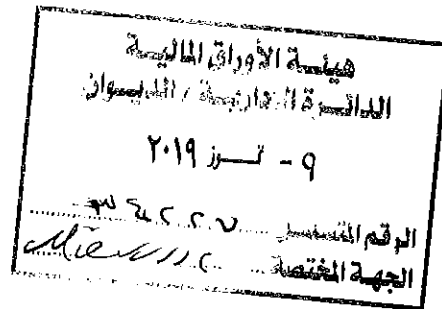 هيئة الأوراق المالية
الدائرة الإدارية / الديوان
٩ - تموز ٢٠١٩
الرقم المتسلسل ٣٤٢٢٧
الجهة المختصة